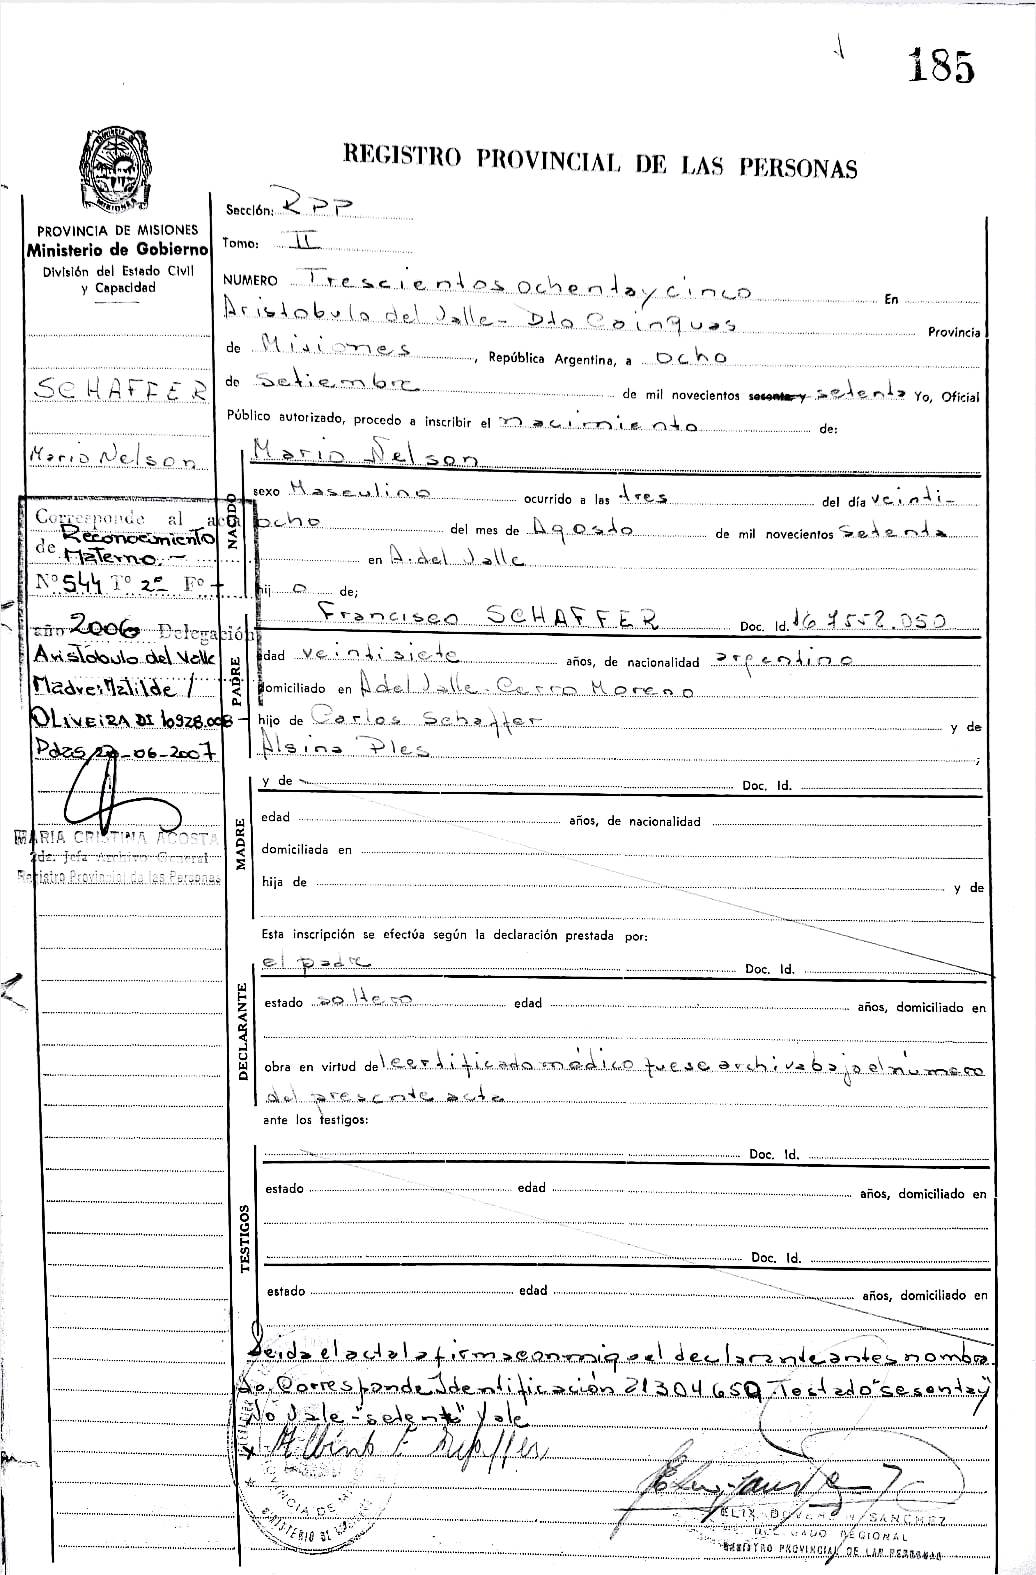 185
REGISTRO PROVINCIAL DE LAS PERSONAS
PROVINCIA DE MISIONES
Ministerio de Gobierno
División del Estado Civil
y Capacidad
SCHAFFER
Mario Nelson
Corresponde al acta
de Reconocimiento
Materno.-
Nº 544 Tº 2º Fº -
año 2006 Delegación
Aristóbulo del Valle
Madre: Matilde
OLIVEIRA DI
Pdas -06-2007
MARIA CRISTINA ACOSTA
2da. Jefa Archivo General
Registro Provincial de las Personas
Sección: RPP
Tomo: II
NUMERO Trescientos ochenta y cinco En
Aristobulo del Valle - Dto Cainguas Provincia
de Misiones, República Argentina, a ocho
de Setiembre de mil novecientos sesenta y setenta Yo, Oficial
Público autorizado, procedo a inscribir el nacimiento de:
NACIDO
Mario Nelson
sexo Masculino ocurrido a las tres del día veinti-
ocho del mes de Agosto de mil novecientos setenta
en A. del Valle
hij o de;
PADRE
Francisco SCHAFFER Doc. Id.
edad veintisiete años, de nacionalidad argentino
domiciliado en A del Valle - Cerro Moreno
hijo de Carlos Schaffer y de
Alsina Ples ;
MADRE
y de Doc. Id.
edad años, de nacionalidad
domiciliada en
hija de y de
Esta inscripción se efectúa según la declaración prestada por:
DECLARANTE
el padre Doc. Id.
estado soltero edad años, domiciliado en
obra en virtud del certificado médico que se archiva bajo el número
del presente acta
ante los testigos:
TESTIGOS
Doc. Id.
estado edad años, domiciliado en
Doc. Id.
estado edad años, domiciliado en
Leida el acta la firma conmigo el declarante antes nombra
do. Corresponde Identificación 21304650 Testado "sesenta y"
No Vale - "setenta" Vale
SANCHEZ
DELEGADO REGIONAL
REGISTRO PROVINCIAL DE LAS PERSONAS